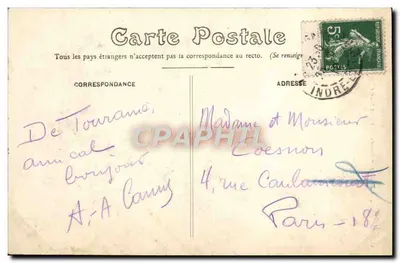 Carte Postale
Tous les pays étrangers n'acceptent pas la correspondance au recto. (Se renseigner
CORRESPONDANCE
ADRESSE
5
23
INDRE-E
De Touraine,
amical
bonjour
A.-A.
CPARAMA
Madame et Monsieur
4, rue Caulaincourt
Paris - 18e